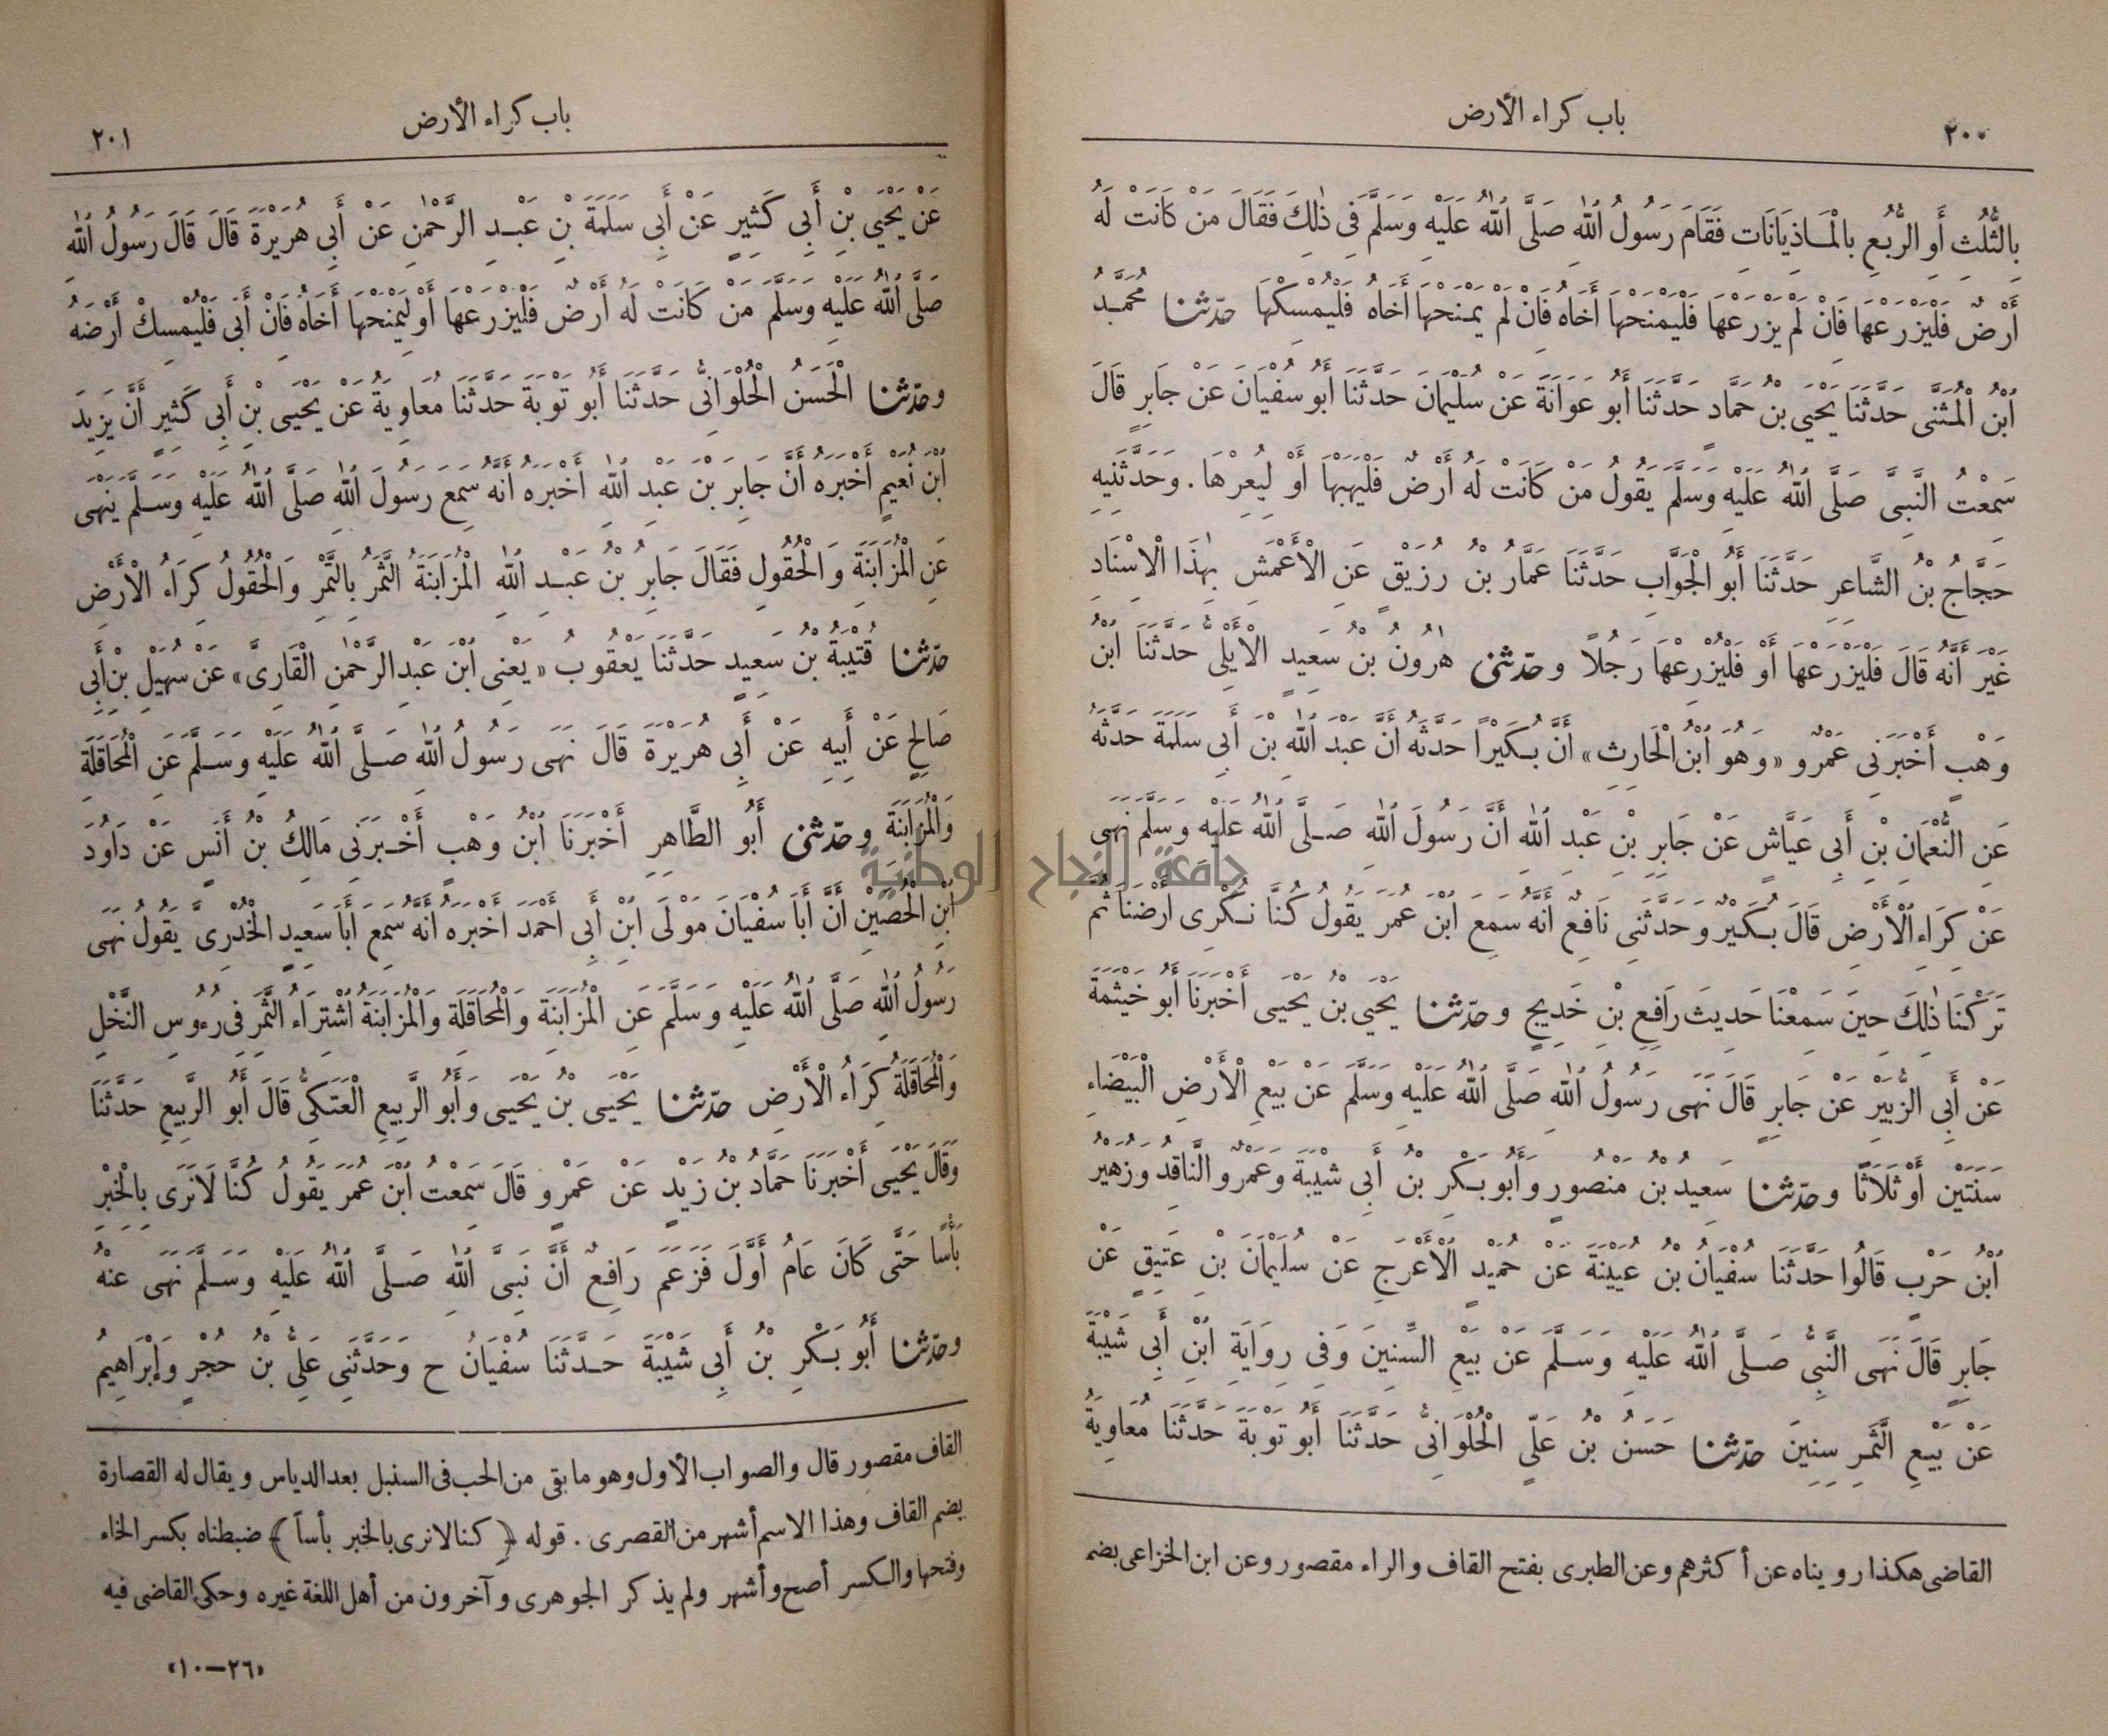 باب كراء الأرض
٢٠٠
بِالثُّلُثِ أَوِ الرُّبُعِ بِالْمَاذِيَانَاتِ فَقَامَ رَسُولُ اللّٰهِ صَلَّى اللّٰهُ عَلَيْهِ وَسَلَّمَ فِى ذٰلِكَ فَقَالَ مَنْ كَانَتْ لَهُ
أَرْضٌ فَلْيَزْرَعْهَا فَإِنْ لَمْ يَزْرَعْهَا فَلْيَمْنَحْهَا أَخَاهُ فَإِنْ لَمْ يَمْنَحْهَا أَخَاهُ فَلْيُمْسِكْهَا حدّثنا مُحَمَّدُ
ابْنُ الْمُثَنَّى حَدَّثَنَا يَحْيَى بْنُ حَمَّادٍ حَدَّثَنَا أَبُو عَوَانَةَ عَنْ سُلَيْمَانَ حَدَّثَنَا أَبُو سُفْيَانَ عَنْ جَابِرٍ قَالَ
سَمِعْتُ النَّبِىَّ صَلَّى اللّٰهُ عَلَيْهِ وَسَلَّمَ يَقُولُ مَنْ كَانَتْ لَهُ أَرْضٌ فَلْيَهَبْهَا أَوْ لِيُعِرْهَا . وَحَدَّثَنِيهِ
حَجَّاجُ بْنُ الشَّاعِرِ حَدَّثَنَا أَبُو الْجَوَّابِ حَدَّثَنَا عَمَّارُ بْنُ رُزَيْقٍ عَنِ الْأَعْمَشِ بِهٰذَا الْإِسْنَادِ
غَيْرَ أَنَّهُ قَالَ فَلْيَزْرَعْهَا أَوْ فَلْيُزْرِعْهَا رَجُلًا وحدّثنى هٰرُونُ بْنُ سَعِيدٍ الْأَيْلِىُّ حَدَّثَنَا ابْنُ
وَهْبٍ أَخْبَرَنِى عَمْرٌو «وَهُوَ ابْنُ الْحَارِثِ» أَنَّ بُكَيْرًا حَدَّثَهُ أَنَّ عَبْدَ اللّٰهِ بْنَ أَبِى سَلَمَةَ حَدَّثَهُ
عَنِ النُّعْمَانِ بْنِ أَبِى عَيَّاشٍ عَنْ جَابِرِ بْنِ عَبْدِ اللّٰهِ أَنَّ رَسُولَ اللّٰهِ صَلَّى اللّٰهُ عَلَيْهِ وَسَلَّمَ نَهَى
عَنْ كِرَاءِ الْأَرْضِ قَالَ بُكَيْرٌ وَحَدَّثَنِى نَافِعٌ أَنَّهُ سَمِعَ ابْنَ عُمَرَ يَقُولُ كُنَّا نُكْرِى أَرْضَنَا ثُمَّ
تَرَكْنَا ذٰلِكَ حِينَ سَمِعْنَا حَدِيثَ رَافِعِ بْنِ خَدِيجٍ وحدّثنا يَحْيَى بْنُ يَحْيَى أَخْبَرَنَا أَبُو خَيْثَمَةَ
عَنْ أَبِى الزُّبَيْرِ عَنْ جَابِرٍ قَالَ نَهَى رَسُولُ اللّٰهِ صَلَّى اللّٰهُ عَلَيْهِ وَسَلَّمَ عَنْ بَيْعِ الْأَرْضِ الْبَيْضَاءِ
سَنَتَيْنِ أَوْ ثَلَاثًا وحدّثنا سَعِيدُ بْنُ مَنْصُورٍ وَأَبُو بَكْرِ بْنُ أَبِى شَيْبَةَ وَعَمْرٌو النَّاقِدُ وَزُهَيْرُ
ابْنُ حَرْبٍ قَالُوا حَدَّثَنَا سُفْيَانُ بْنُ عُيَيْنَةَ عَنْ حُمَيْدٍ الْأَعْرَجِ عَنْ سُلَيْمَانَ بْنِ عَتِيقٍ عَنْ
جَابِرٍ قَالَ نَهَى النَّبِىُّ صَلَّى اللّٰهُ عَلَيْهِ وَسَلَّمَ عَنْ بَيْعِ السِّنِينَ وَفِى رِوَايَةِ ابْنِ أَبِى شَيْبَةَ
عَنْ بَيْعِ الثَّمَرِ سِنِينَ حدّثنا حَسَنُ بْنُ عَلِىٍّ الْحُلْوَانِىُّ حَدَّثَنَا أَبُو تَوْبَةَ حَدَّثَنَا مُعَاوِيَةُ
القاضى هكذا رويناه عن أكثرهم وعن الطبرى بفتح القاف والراء مقصور وعن ابن الخزاعى بضم
باب كراء الأرض
٢٠١
عَنْ يَحْيَى بْنِ أَبِى كَثِيرٍ عَنْ أَبِى سَلَمَةَ بْنِ عَبْدِ الرَّحْمٰنِ عَنْ أَبِى هُرَيْرَةَ قَالَ قَالَ رَسُولُ اللّٰهِ
صَلَّى اللّٰهُ عَلَيْهِ وَسَلَّمَ مَنْ كَانَتْ لَهُ أَرْضٌ فَلْيَزْرَعْهَا أَوْ لِيَمْنَحْهَا أَخَاهُ فَإِنْ أَبَى فَلْيُمْسِكْ أَرْضَهُ
وحدّثنا الْحَسَنُ الْحُلْوَانِىُّ حَدَّثَنَا أَبُو تَوْبَةَ حَدَّثَنَا مُعَاوِيَةُ عَنْ يَحْيَى بْنِ أَبِى كَثِيرٍ أَنَّ يَزِيدَ
ابْنَ نُعَيْمٍ أَخْبَرَهُ أَنَّ جَابِرَ بْنَ عَبْدِ اللّٰهِ أَخْبَرَهُ أَنَّهُ سَمِعَ رَسُولَ اللّٰهِ صَلَّى اللّٰهُ عَلَيْهِ وَسَلَّمَ يَنْهَى
عَنِ الْمُزَابَنَةِ وَالْحُقُولِ فَقَالَ جَابِرُ بْنُ عَبْدِ اللّٰهِ الْمُزَابَنَةُ الثَّمَرُ بِالتَّمْرِ وَالْحُقُولُ كِرَاءُ الْأَرْضِ
حدّثنا قُتَيْبَةُ بْنُ سَعِيدٍ حَدَّثَنَا يَعْقُوبُ «يَعْنِى ابْنَ عَبْدِ الرَّحْمٰنِ الْقَارِىَّ» عَنْ سُهَيْلِ بْنِ أَبِى
صَالِحٍ عَنْ أَبِيهِ عَنْ أَبِى هُرَيْرَةَ قَالَ نَهَى رَسُولُ اللّٰهِ صَلَّى اللّٰهُ عَلَيْهِ وَسَلَّمَ عَنِ الْمُحَاقَلَةِ
وَالْمُزَابَنَةِ وحدّثنى أَبُو الطَّاهِرِ أَخْبَرَنَا ابْنُ وَهْبٍ أَخْبَرَنِى مَالِكُ بْنُ أَنَسٍ عَنْ دَاوُدَ
ابْنِ الْحُصَيْنِ أَنَّ أَبَا سُفْيَانَ مَوْلَى ابْنِ أَبِى أَحْمَدَ أَخْبَرَهُ أَنَّهُ سَمِعَ أَبَا سَعِيدٍ الْخُدْرِىَّ يَقُولُ نَهَى
رَسُولُ اللّٰهِ صَلَّى اللّٰهُ عَلَيْهِ وَسَلَّمَ عَنِ الْمُزَابَنَةِ وَالْمُحَاقَلَةِ وَالْمُزَابَنَةُ اشْتِرَاءُ الثَّمَرِ فِى رُءُوسِ النَّخْلِ
وَالْمُحَاقَلَةُ كِرَاءُ الْأَرْضِ حدّثنا يَحْيَى بْنُ يَحْيَى وَأَبُو الرَّبِيعِ الْعَتَكِىُّ قَالَ أَبُو الرَّبِيعِ حَدَّثَنَا
وَقَالَ يَحْيَى أَخْبَرَنَا حَمَّادُ بْنُ زَيْدٍ عَنْ عَمْرٍو قَالَ سَمِعْتُ ابْنَ عُمَرَ يَقُولُ كُنَّا لَا نَرَى بِالْخِبْرِ
بَأْسًا حَتَّى كَانَ عَامُ أَوَّلَ فَزَعَمَ رَافِعٌ أَنَّ نَبِىَّ اللّٰهِ صَلَّى اللّٰهُ عَلَيْهِ وَسَلَّمَ نَهَى عَنْهُ
وحدّثنا أَبُو بَكْرِ بْنُ أَبِى شَيْبَةَ حَدَّثَنَا سُفْيَانُ ح وَحَدَّثَنِى عَلِىُّ بْنُ حُجْرٍ وَإِبْرَاهِيمُ
القاف مقصور قال والصواب الأول وهو ما بقى من الحب فى السنبل بعد الدياس ويقال له القصارة
بضم القاف وهذا الاسم أشهر من القصرى . قوله ﴿ كنا لا نرى بالخبر بأساً ﴾ ضبطناه بكسر الخاء
وفتحها والكسر أصح وأشهر ولم يذكر الجوهرى وآخرون من أهل اللغة غيره وحكى القاضى فيه
«٢٦—١٠»
جامعة النجاح الوطنية